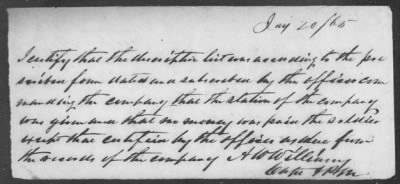 Jany 20/65
I certify that the descriptive list was according to the pre
scribed form dated and subscribed by the officer com
manding the company that the station of the company
was given and that no money was paid the soldier
except that certified by the officer as due from
the records of the company A W Williams
Capt